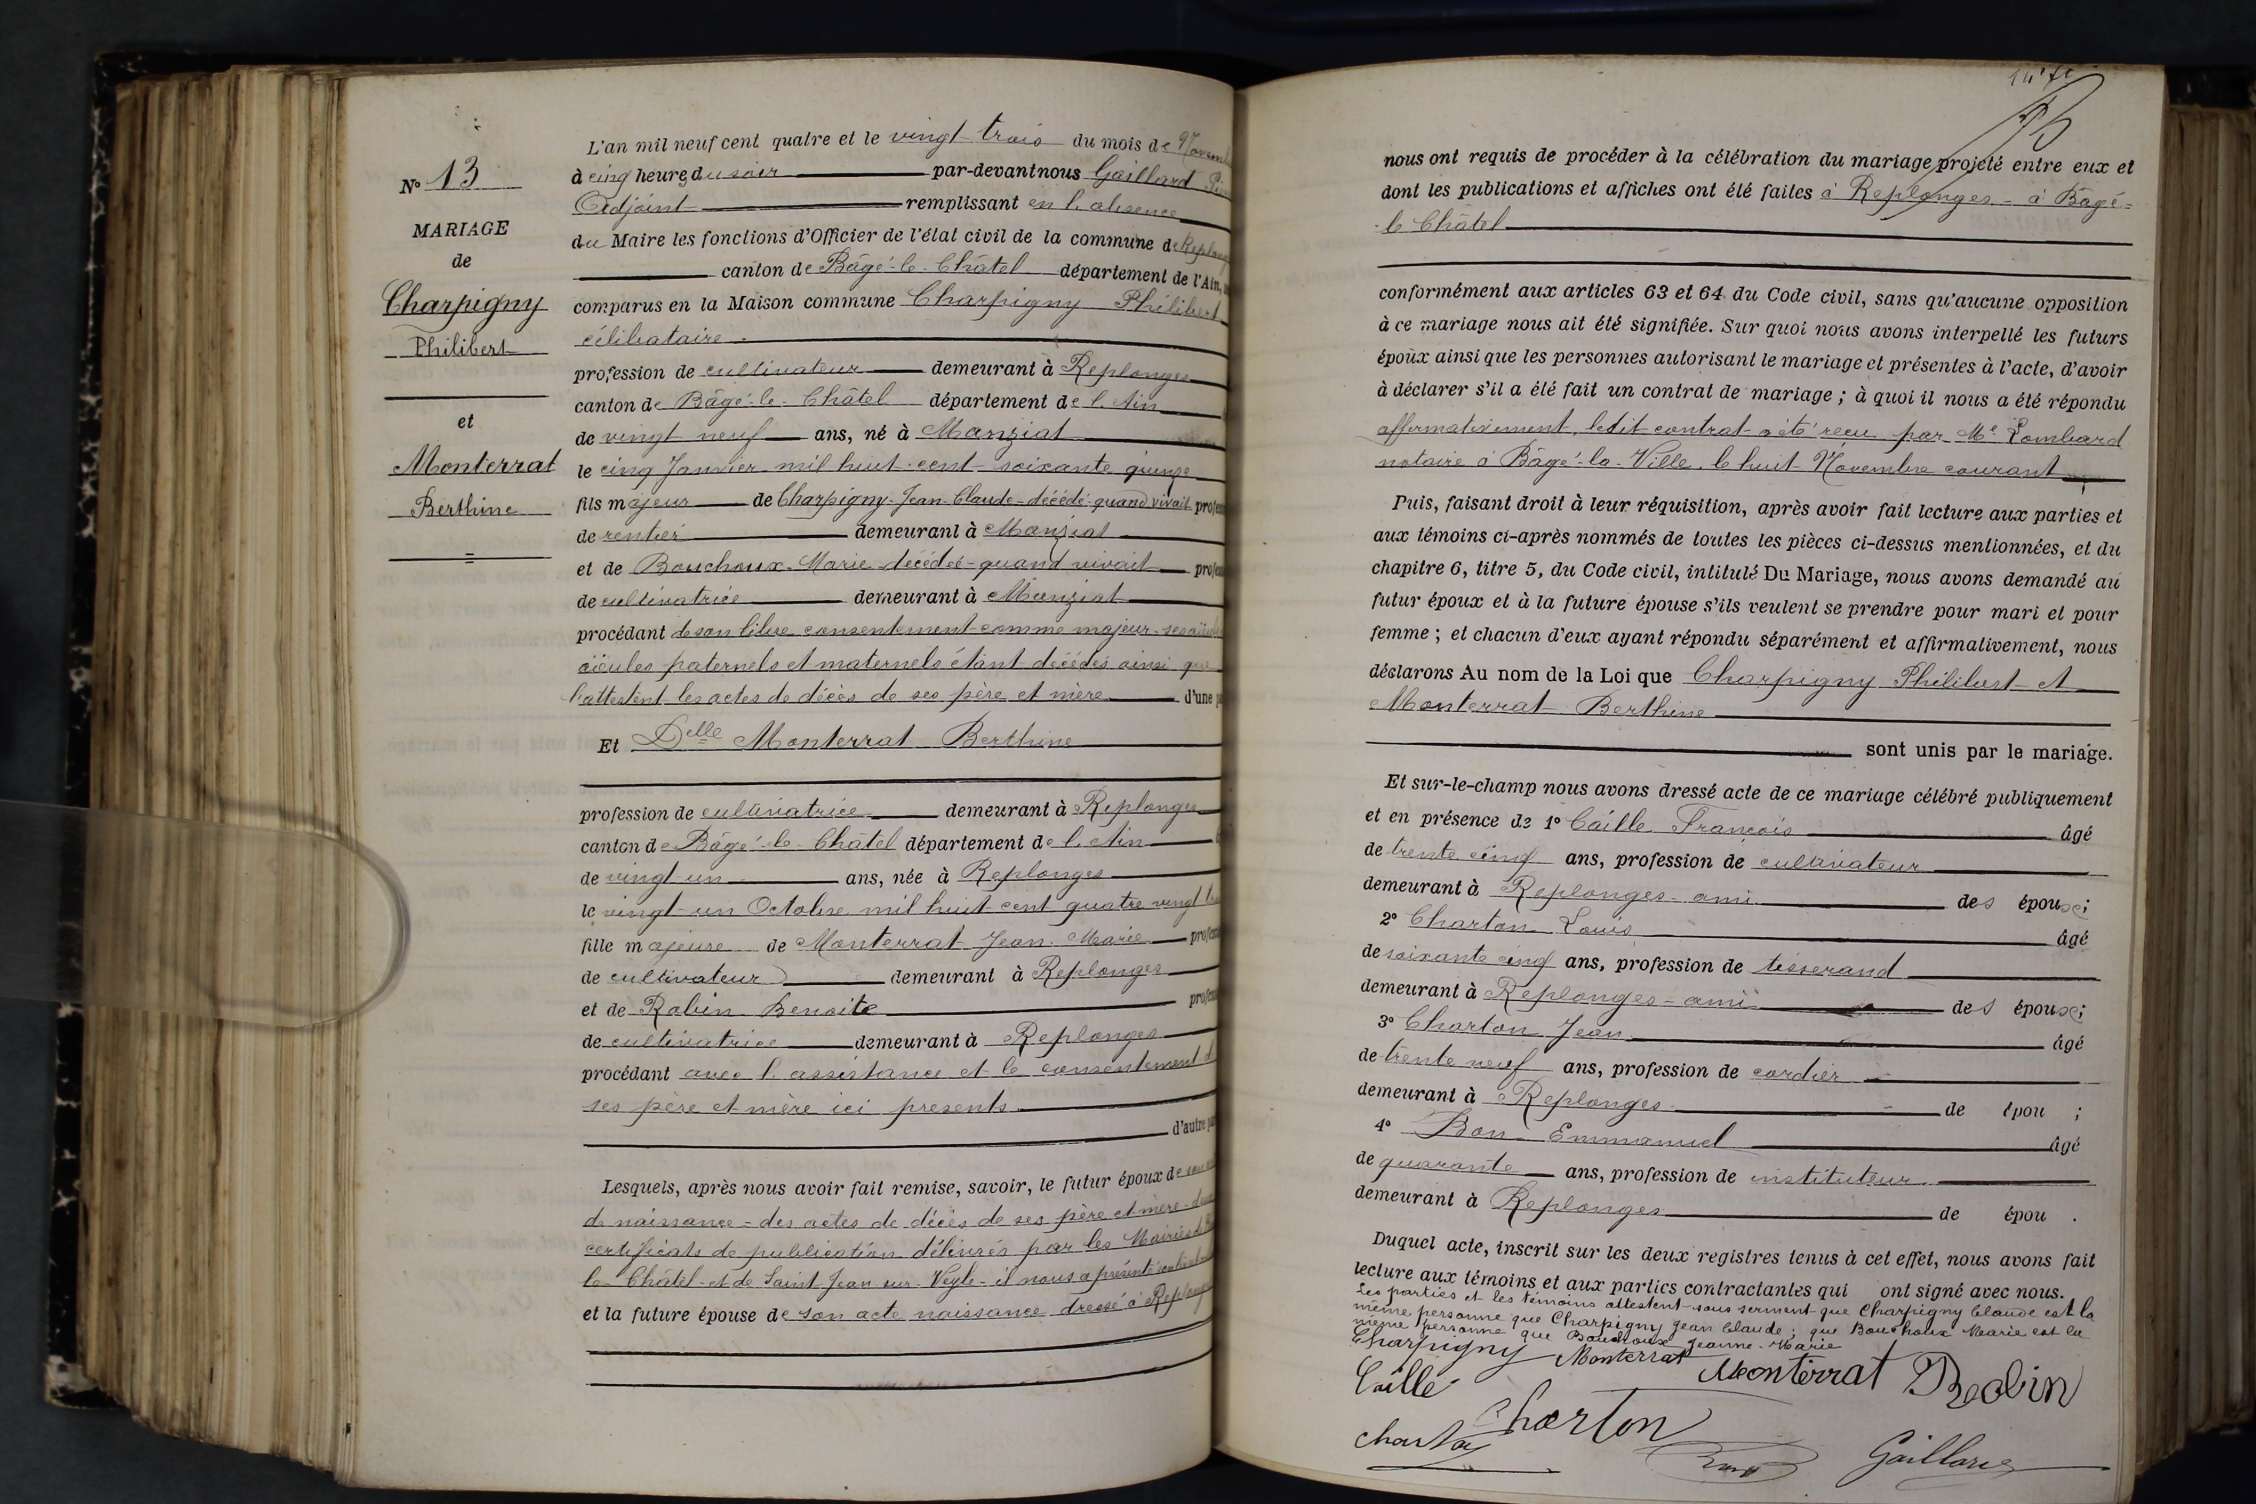 N° 13
MARIAGE
de
Charpigny
Philibert
et
Monterrat
Berthine
L'an mil neuf cent quatre et le vingt trois du mois de
à cinq heures du soir par-devant nous Gaillard
Adjoint remplissant en l'absence
du Maire les fonctions d'Officier de l'état civil de la commune de
canton de Bâgé-le-Châtel département de l'Ain,
comparus en la Maison commune Charpigny Philibert
célibataire
profession de cultivateur demeurant à Replonges
canton de Bâgé-le-Châtel département de l'Ain
de vingt neuf ans, né à Manziat
le cinq Janvier mil huit cent soixante quinze
fils majeur de Charpigny Jean Claude - décédé quand vivait
de rentier demeurant à Manziat
et de Bouchoux Marie décédée - quand vivait
de cultivatrice demeurant à Manziat
procédant de son libre consentement comme majeur -
aïeules paternels et maternels étant décédés ainsi que
l'attestent les actes de décès de ses père et mère d'une
Et Delle Monterrat Berthine
profession de cultivatrice demeurant à Replonges
canton de Bâgé-le-Châtel département de l'Ain
de vingt-un ans, née à Replonges
le vingt-un Octobre mil huit cent quatre vingt
fille majeure de Monterrat Jean Marie
de cultivateur demeurant à Replonges
et de Rabin Benoite
de cultivatrice demeurant à Replonges
procédant avec l'assistance et le consentement
ses père et mère ici presents
d'autre
Lesquels, après nous avoir fait remise, savoir, le futur époux de
de naissance - des actes de décès de ses père et mère -
certificats de publication délivrés par les Mairies de
le Châtel - et de Saint Jean sur Veyle - il nous a présenté
et la future épouse de son acte naissance dressé à Replonges
nous ont requis de procéder à la célébration du mariage projeté entre eux et
dont les publications et affiches ont été faites à Replonges - à Bâgé-
le Châtel
conformément aux articles 63 et 64 du Code civil, sans qu'aucune opposition
à ce mariage nous ait été signifiée. Sur quoi nous avons interpellé les futurs
époux ainsi que les personnes autorisant le mariage et présentes à l'acte, d'avoir
à déclarer s'il a été fait un contrat de mariage ; à quoi il nous a été répondu
affirmativement, ledit contrat a été reçu par Me Lombard
notaire à Bâgé-la-Ville, le huit Novembre courant
Puis, faisant droit à leur réquisition, après avoir fait lecture aux parties et
aux témoins ci-après nommés de toutes les pièces ci-dessus mentionnées, et du
chapitre 6, titre 5, du Code civil, intitulé Du Mariage, nous avons demandé au
futur époux et à la future épouse s'ils veulent se prendre pour mari et pour
femme ; et chacun d'eux ayant répondu séparément et affirmativement, nous
déclarons Au nom de la Loi que Charpigny Philibert et
Monterrat Berthine
sont unis par le mariage.
Et sur-le-champ nous avons dressé acte de ce mariage célébré publiquement
et en présence de 1° Caille François âgé
de trente cinq ans, profession de cultivateur
demeurant à Replonges - ami des épouse;
2° Charton Louis âgé
de soixante cinq ans, profession de tisserand
demeurant à Replonges - ami des épouse;
3° Charton Jean âgé
de trente neuf ans, profession de cordier
demeurant à Replonges de épou ;
4° Bon Emmanuel âgé
de quarante ans, profession de instituteur
demeurant à Replonges de épou .
Duquel acte, inscrit sur les deux registres tenus à cet effet, nous avons fait
lecture aux témoins et aux parties contractantes qui ont signé avec nous.
Les parties et les témoins attestent sous serment que Charpigny Claude est la
même personne que Charpigny Jean Claude ; que Bouchoux Marie est la
même personne que Bouchoux Jeanne-Marie
Charpigny Monterrat Monterrat Rabin
Caille Charton
Charton Gaillard